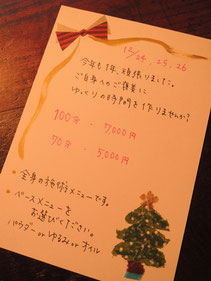 12/24, 25, 26
今年も1年、頑張りました。
ご自身へのご褒美に
ゆっくりの時間を作りませんか?
100分・7,000円
70分・5,000円
・全身の施術メニューです。
・ベースメニューを
お選びください。
パウダー or ゆるみ or オイル